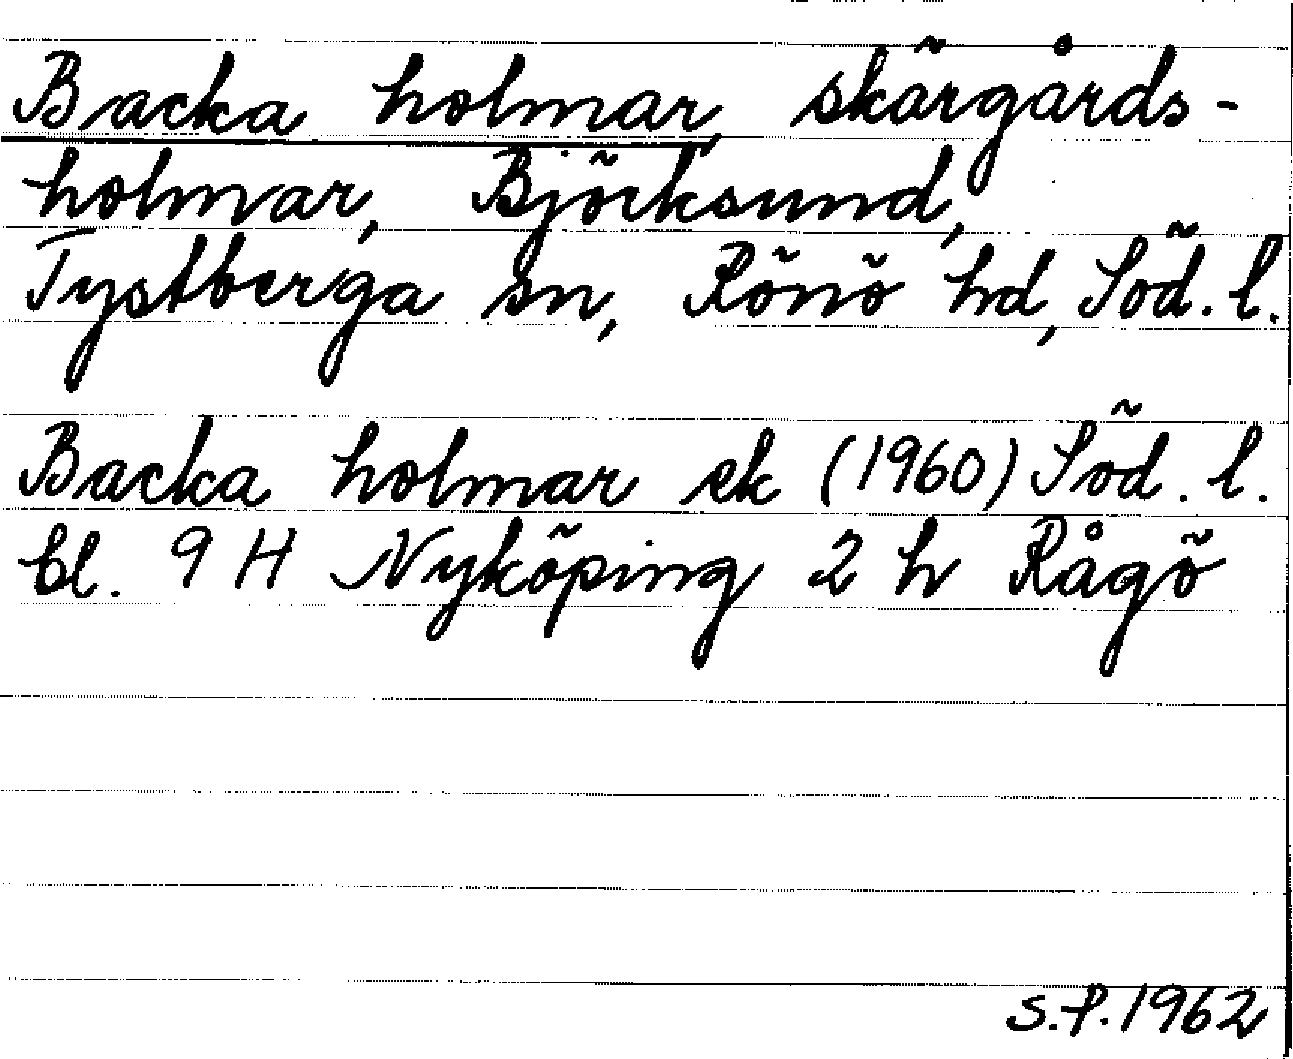 Backa holmar, skärgårds-
holmar, Björksund,
Tystberga sn, Rönö hd, Söd. l.
Backa holmar ek (1960) Söd. l.
bl. 9 H Nyköping 2 h Rågö
S.P. 1962